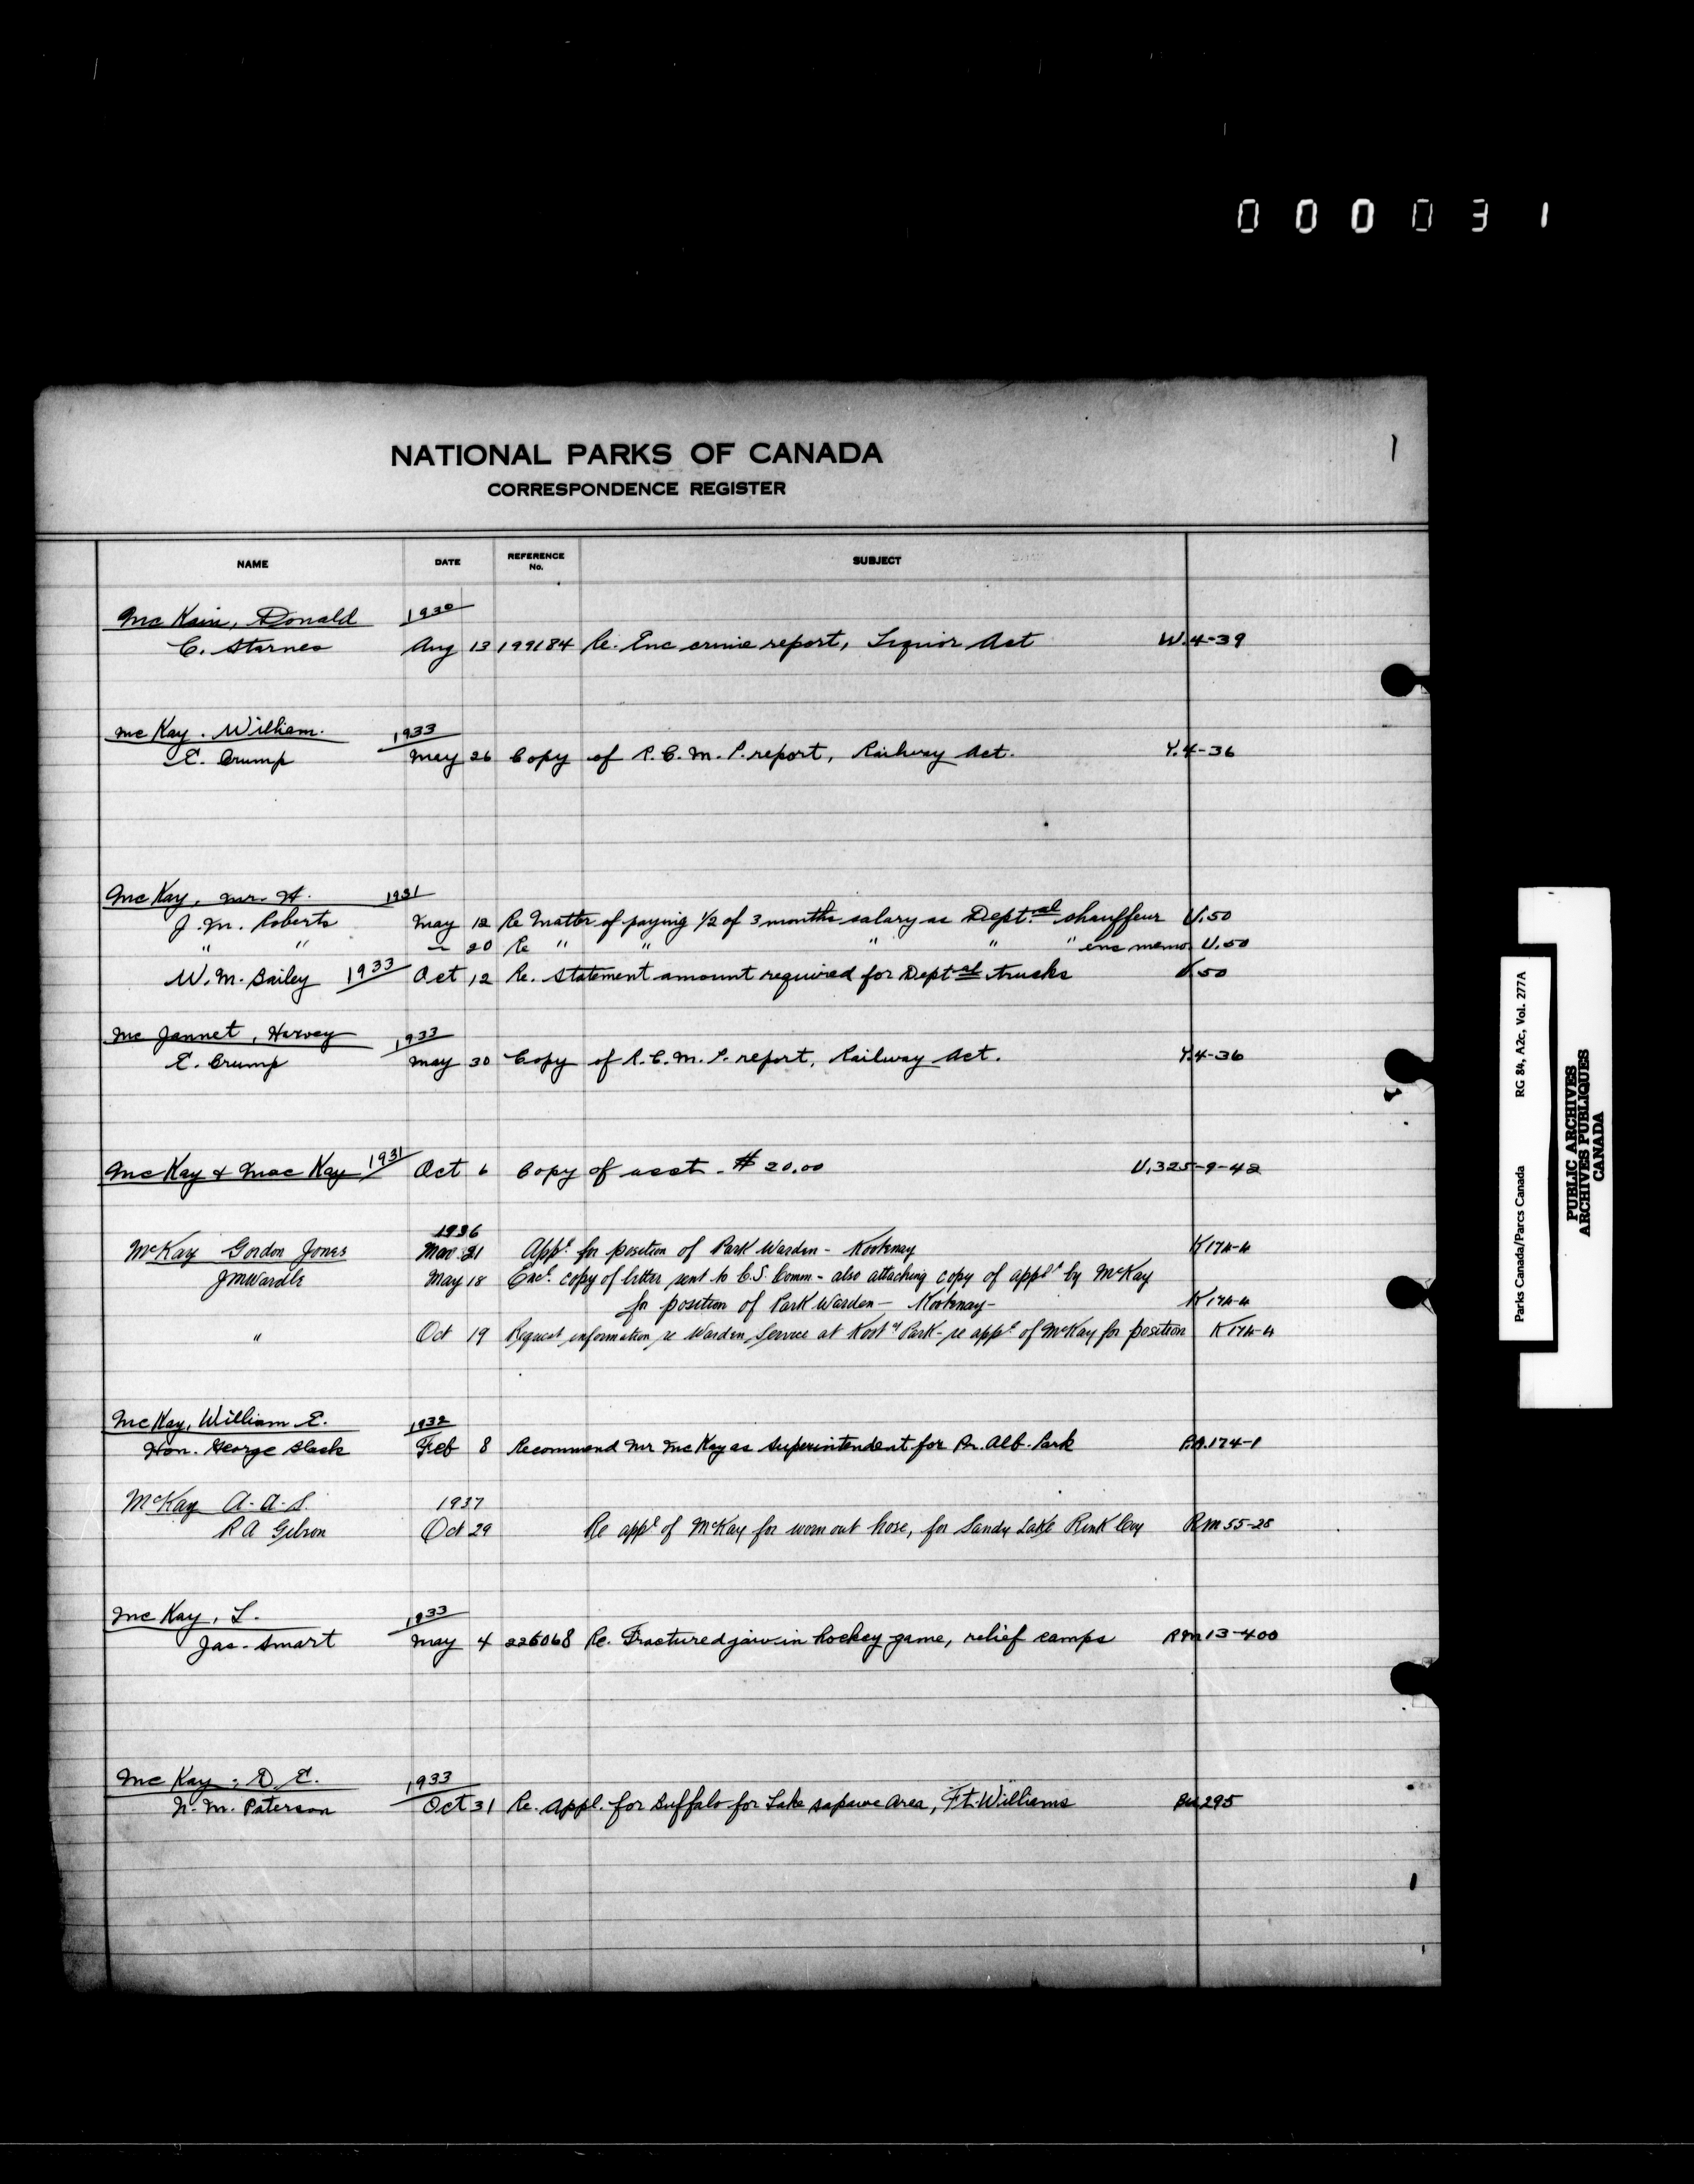 000031
NATIONAL PARKS OF CANADA
1
CORRESPONDENCE REGISTER
NAME DATE REFERENCE No. SUBJECT
McKain, Donald 1930
C. Starnes Aug 13 199184 Re. Enc crime report, Liquor Act W.4-39
McKay. William. 1933
E. Crump May 26 Copy of R.C.M.P. report, Railway Act. Y.4-36
McKay, Mr. H. 1931
J.M. Roberts May 12 Re Matter of paying 1/2 of 3 months salary as Dept.al shauffeur U.50
" " - 20 Re " " " " " enc memo. U.50
W.M. Bailey 1933 Oct 12 Re. Statement amount required for Deptal trucks U.50
McJannet, Harvey 1933
E. Crump May 30 Copy of R.C.M.P. report, Railway Act. Y.4-36
McKay & MacKay 1931 Oct 6 Copy of acct - $20.00 U.325-9-42
McKay Gordon Jones 1936
Mar. 21 Appn. for position of Park Warden - Kootenay K174-4
JMWardle May 18 Encl. copy of letter sent to C.S. Comm - also attaching copy of appln by McKay
for position of Park Warden - Kootenay - K174-4
" Oct 19 Request information re Warden Service at Kooty Park - re appn of McKay for position K174-4
McKay, William E. 1932
Hon. George Black Feb 8 Recommend Mr McKay as Superintendent for Pr. Alb. Park P.A.174-1
McKay A.A.S. 1937
R A Gibson Oct 29 Re appl of McKay for worn out hose, for Sandy Lake Rink Coy RM55-28
McKay, L. 1933
Jas. Smart May 4 226068 Re. Fractured jaw in hockey game, relief camps RM13-400
McKay, D.E. 1933
N.M. Paterson Oct 31 Re. Appl. for Buffalo for Lake Sapawe Area, Ft. Williams Bu295
Parks Canada/Parcs Canada RG 84, A2c, Vol. 277A
PUBLIC ARCHIVES
ARCHIVES PUBLIQUES
CANADA